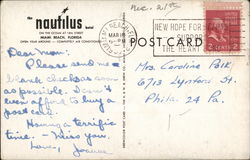 the nautilus hotel
ON THE OCEAN AT 18TH STREET
MIAMI BEACH, FLORIDA
OPEN YEAR AROUND — COMPLETELY AIR CONDITIONED
MIAMI BEACH
MAR
FLA
NEW HOPE FOR
THE HEART
POST CARD
2
Dear Mom:
Please send me
blank checks as soon
as possible. I can't
even afford to buy a
post card.
Having a terrific
time. - Miss you.
Love,
Joanne
Mrs. Caroline Polk
6713 Lynford St.
Phila. 24 Pa.